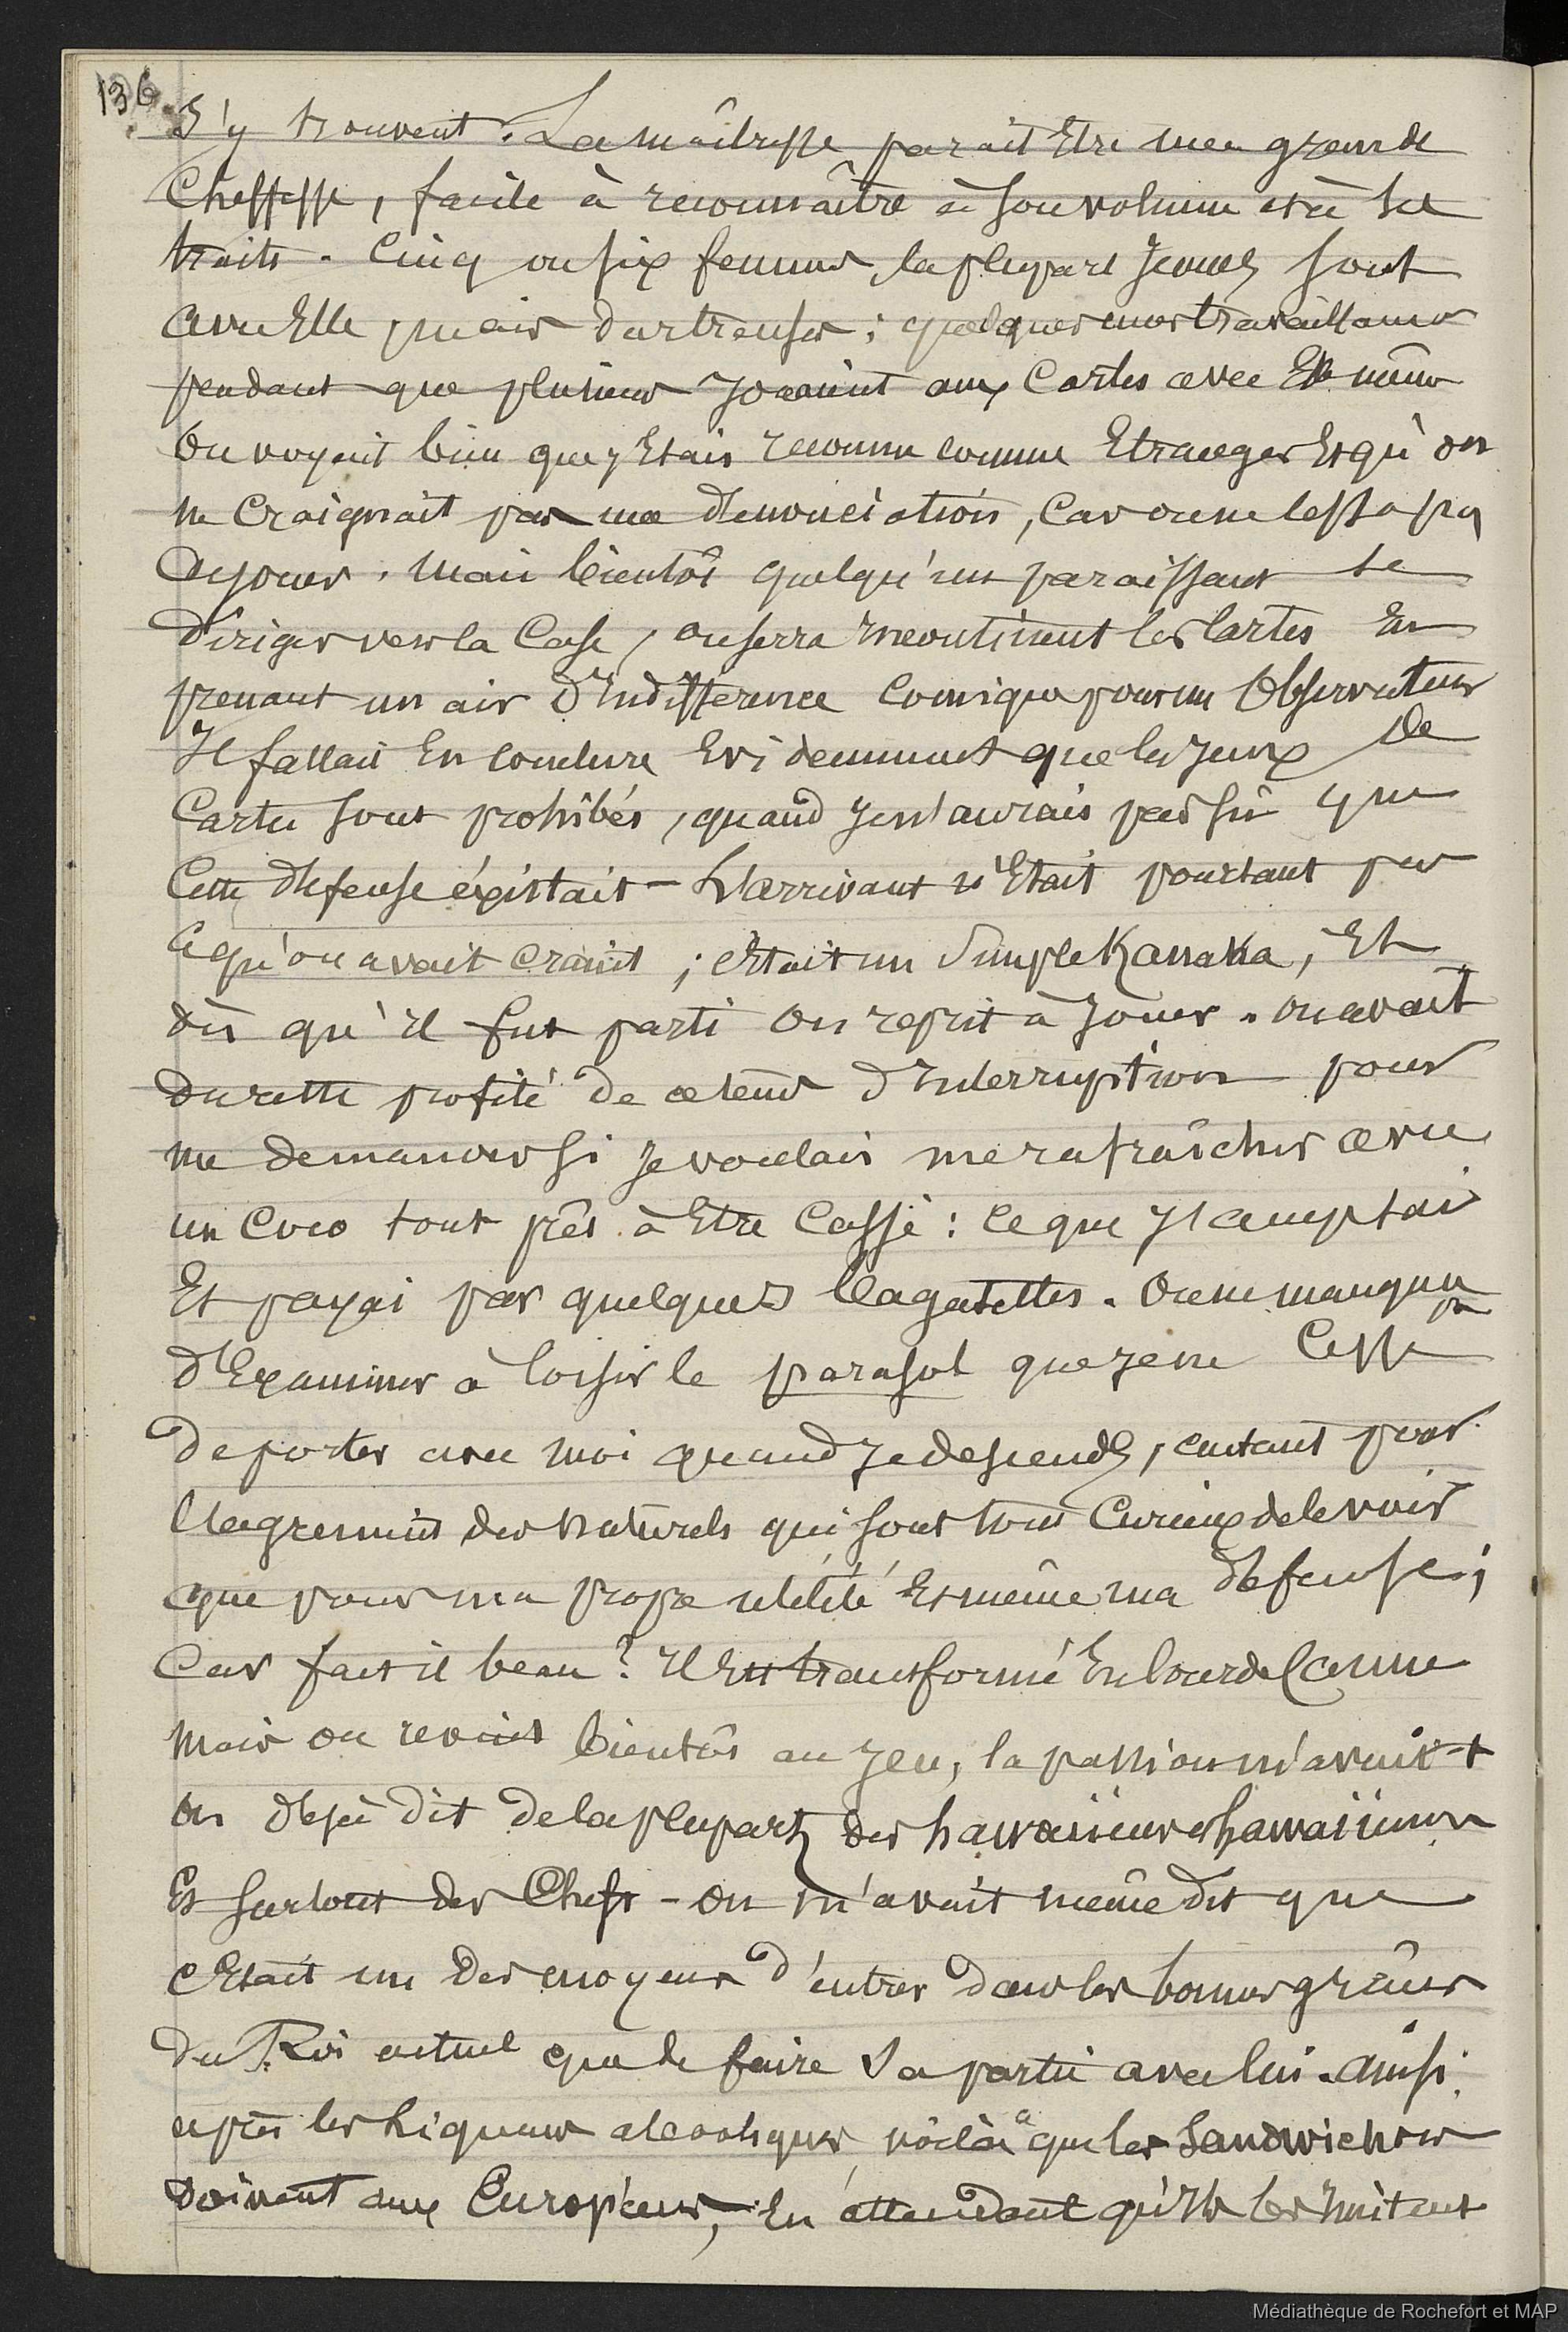 136
s'y trouvent. La maîtresse parait Etre une grande
Cheffesse, facile à reconnaître à son volume et à ses
traits. Cinq ou six femmes, la plupart Jeunes sont
avec Elle, mais dartreuses ; quelques unes travaillant
pendant que plusieurs Jouaient aux Cartes avec Elle même
On voyait bien que j'Etais reconnu comme Etranger Et qu'on
ne Craignait pas ma dénonciation, Car on ne cessa pas
de jouer. Mais bientôt quelqu'un paraissant se
diriger vers la Case, on serra incontinent les Cartes En
prenant un air d'Indifference Comique pour un Observateur
Il fallait En conclure Evidemment que les Jeux de
Cartes sont prohibés, quand Je n'aurais pas sû que
Cette défense éxistait - L'arrivant n'Etait pourtant pas
ce qu'on avait craint ; c'Etait un Simple Kanaka, Et
dès qu'il fut parti on reprit à Jouer. on avait
du reste profité de ce tems d'Interruption pour
me demander si Je voulais me rafraîchir avec
un Coco tout prêt à Etre Cassé : Ce que J'acceptai
Et payai par quelques bagatelles. On ne manqua pas
d'Examiner à loisir le parasol que Je ne Cesse
de porter avec moi quand Je descends, autant pour
l'agrement des Naturels qui sont tous Curieux de le voir
que pour ma propre utilité Et même ma défense ;
Car fait il beau ? Il Est transformé En lourde Canne
Mais on revint bientôt au Jeu, la passion m'avait-
on déjà dit de la plupart des hawaiiens et hawaiiennes
Et surtout des Chefs - On m'avait même dit que
c'Etait un des moyens d'entrer dans les bonnes grâces
du Roi actuel que de faire Sa partie avec lui. Ainsi
après les Liqueurs alcooliques, voilà ce que les Sandwichiens
doivent aux Européens, En attendant qu'Ils les Imitent
Médiathèque de Rochefort et MAP